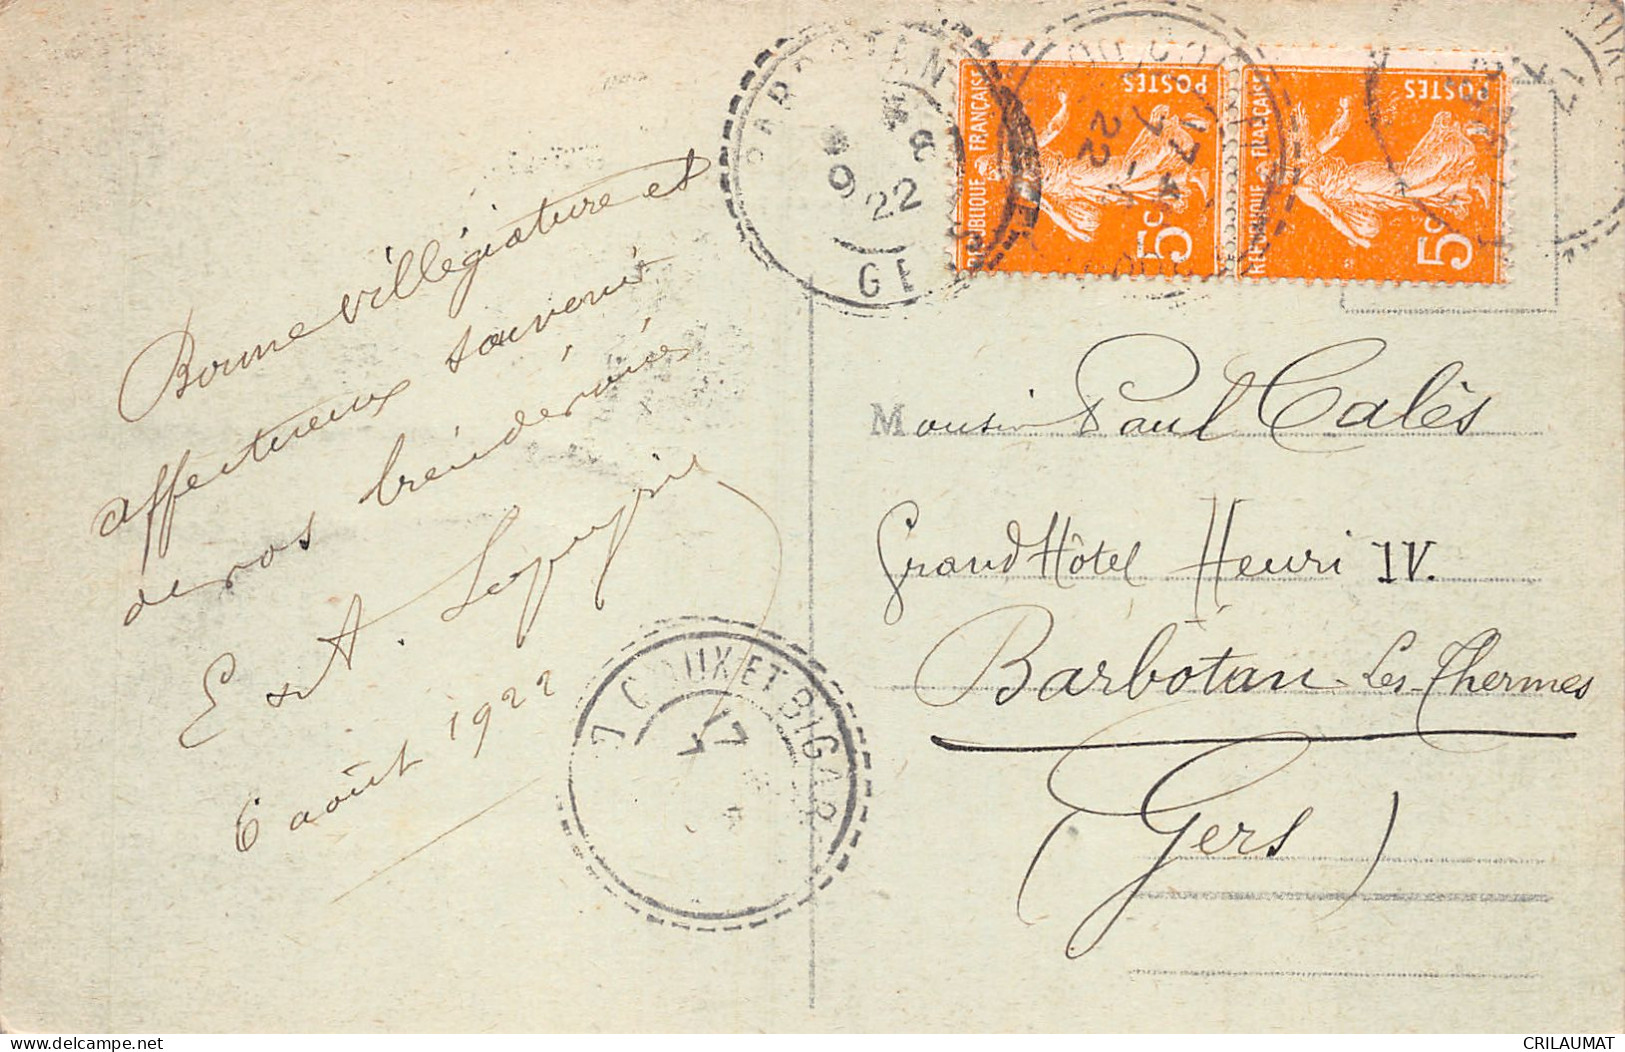 Bonne villégiature et
affectueux souvenir
de vos bien dévoués
E et A.
6 août 1922
BARBOTAN
9 8
22
GERS
REPUBLIQUE FRANÇAISE
POSTES
5c
REPUBLIQUE FRANÇAISE
POSTES
5c
17
22
12
Monsieur Paul Calès
Grand Hôtel Henri IV.
Barbotan-Les-Thermes
(Gers)
ET BIGAR
17
CRILAUMAT